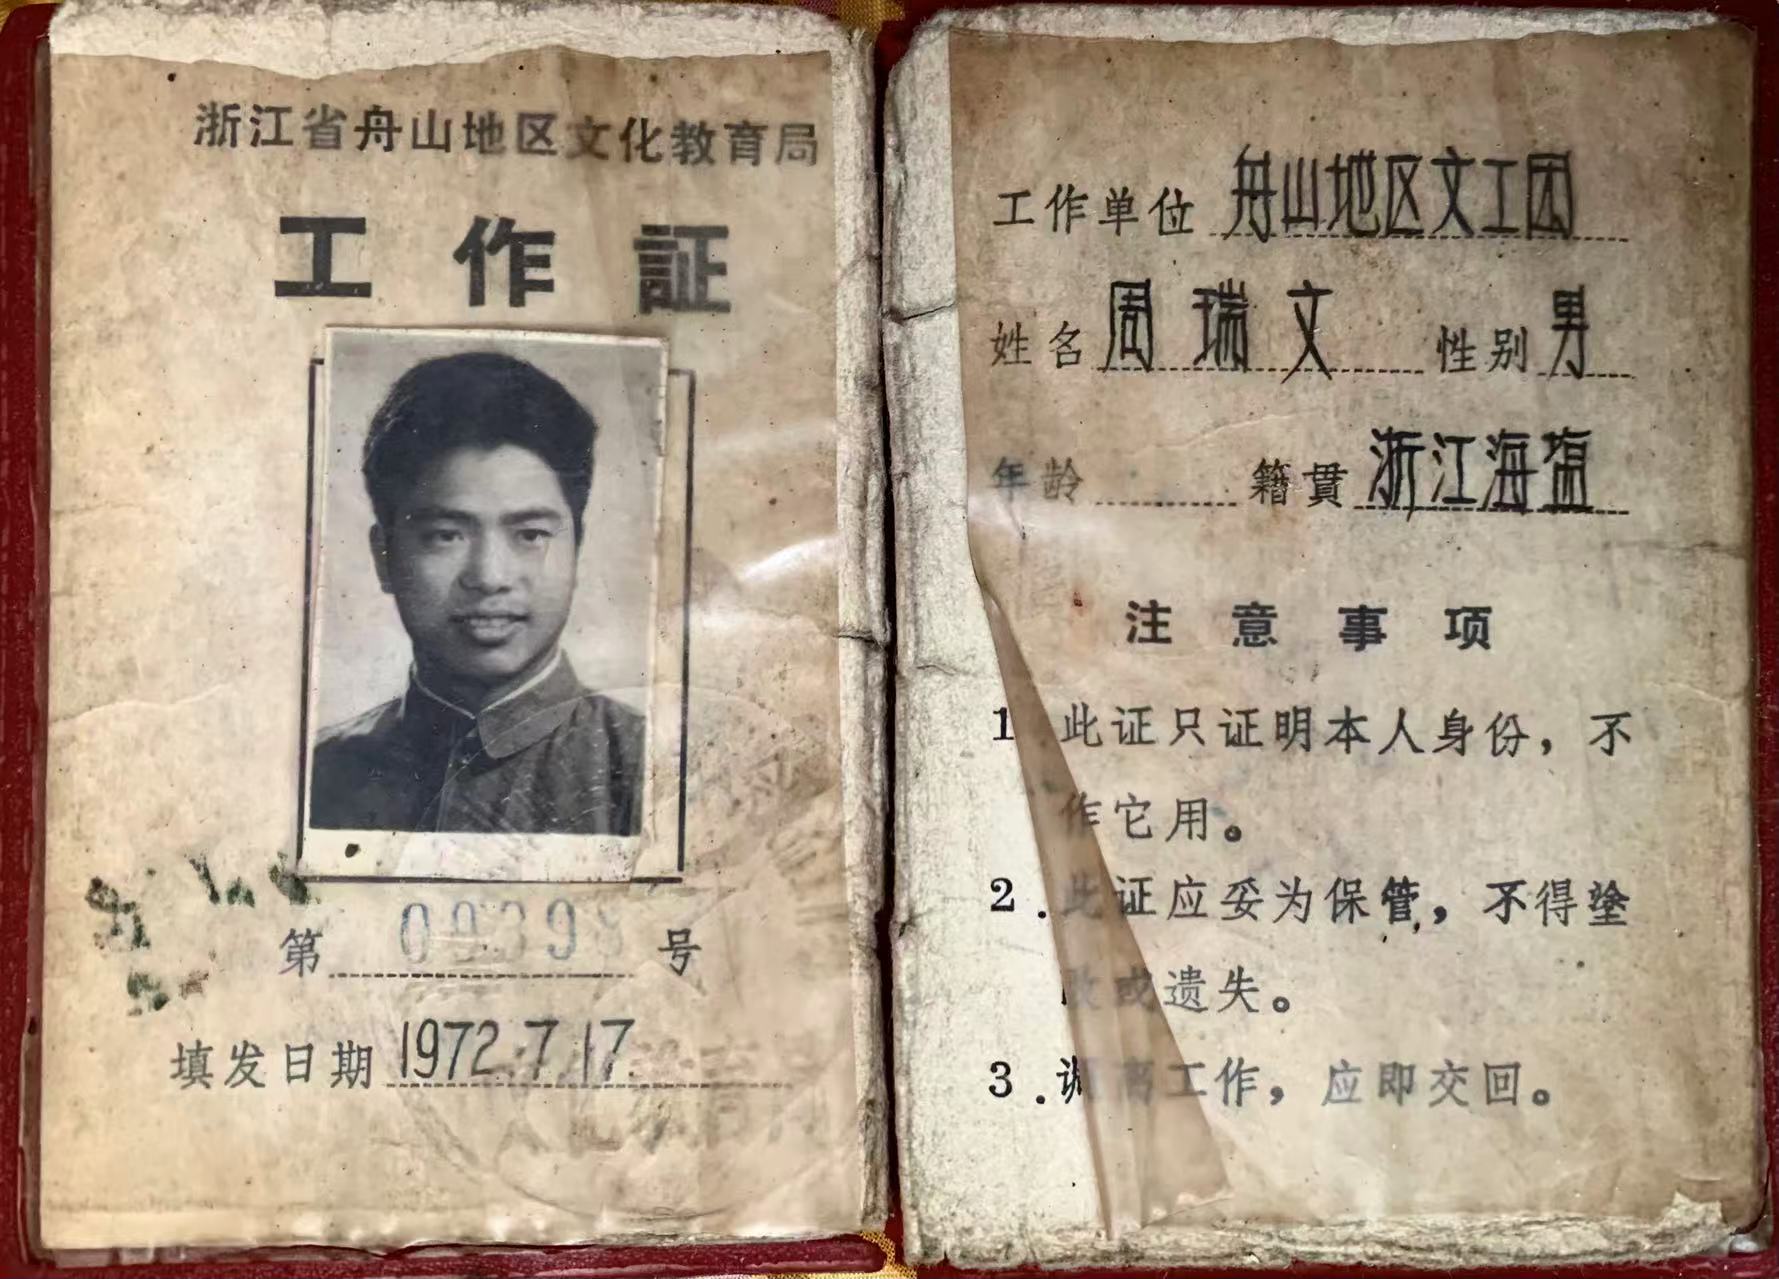 浙江省舟山地区文化教育局
工作証
第 号
填发日期 1972.7.17
工作单位 舟山地区文工团
姓名 周瑞文 性别 男
年龄 籍贯 浙江海塩
注意事项
1.此证只证明本人身份，不
作它用。
2.此证应妥为保管，不得塗
改或遗失。
3.调离工作，应即交回。